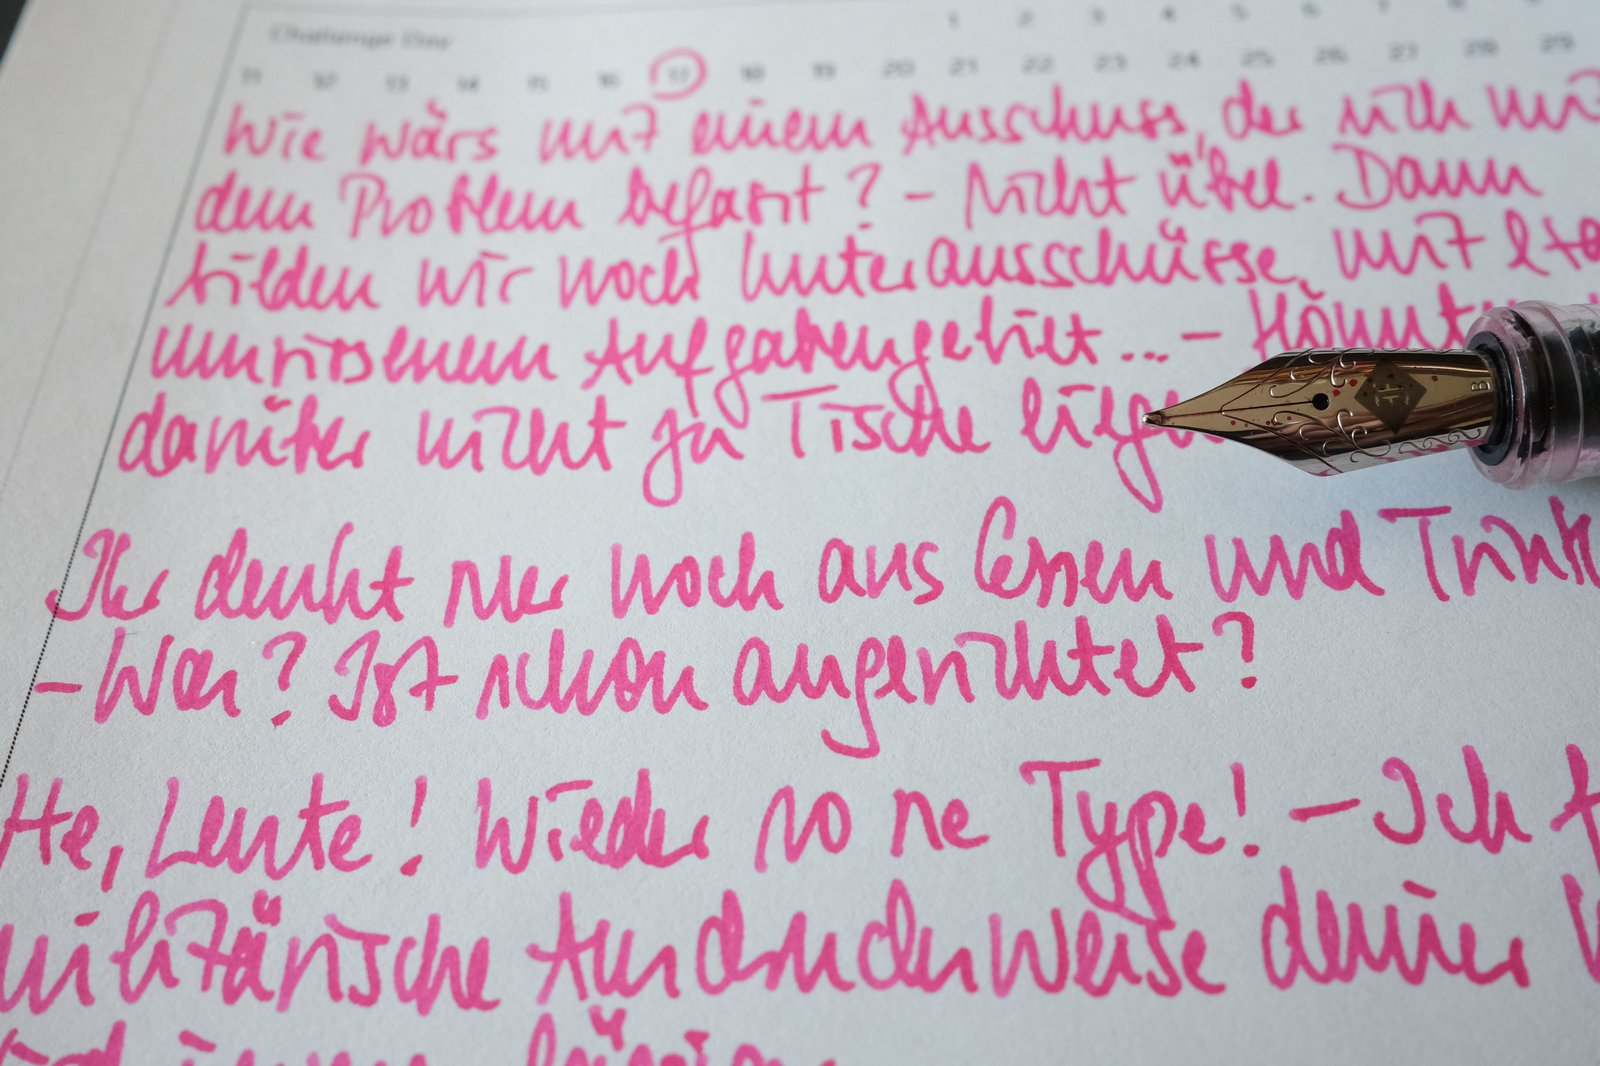 Challenge Day
1 2 3 4 5 6 7 8 9
11 12 13 14 15 16 17 18 19 20 21 22 23 24 25 26 27 28 29
Wie wärs mit einem Ausschuss, der sich mit
dem Problem befasst? – Nicht übel. Dann
bilden wir noch Unterausschüsse, mit
umrissenem Aufgabengebiet... –
darüber nicht zu Tische
Ihr denkt nur noch ans Essen und
– Was? Ist schon angerichtet?
He, Leute! Wieder so ne Type! – Ich
militärische Ausdrucksweise deiner